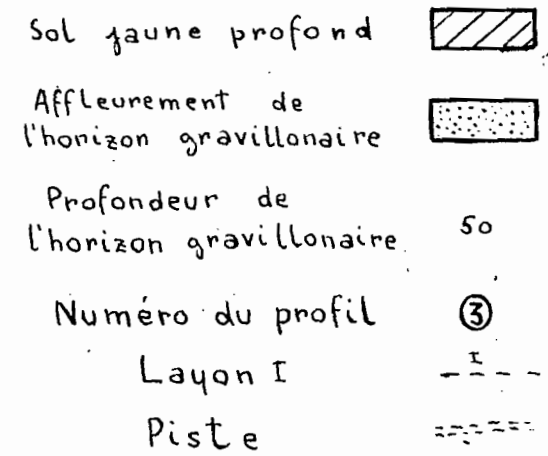 Sol jaune profond
Affleurement de
l'horizon gravillonaire
Profondeur de
l'horizon gravillonaire 50
Numéro du profil 3
Layon I I
Piste